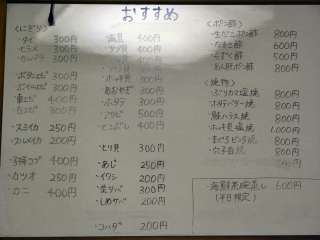 おすすめ
<にぎり>
・タイ 300円
・ヒラメ 300円
・カンパチ 300円
・ボタンエビ 300円
・ぶどうエビ 300円
・車エビ 400円
300円
・スミイカ 250円
・スルメイカ 200円
・子持コブ 400円
・カツオ 250円
・カニ 400円
400円
・ツブ貝 400円
・ホッキ貝 300円
・あおやぎ 300円
・ホタテ 300円
・アワビ 500円
・とこぶし 400円
・とり貝 300円
・あじ 250円
・イワシ 200円
・生サバ 300円
・しめサバ 200円
・コハダ 200円
<ポン酢>
・生ガキポン酢 800円
・なまこ酢 600円
・もずく酢 500円
・あん肝ポン酢 800円
<焼物>
・ぶりカマ塩焼 800円
・ホタテバター焼 800円
・鮭ハラス焼 800円
・ホッキ貝塩焼 1,000円
800円
・穴子白焼 800円
・海鮮茶碗蒸し 600円
(平日限定)